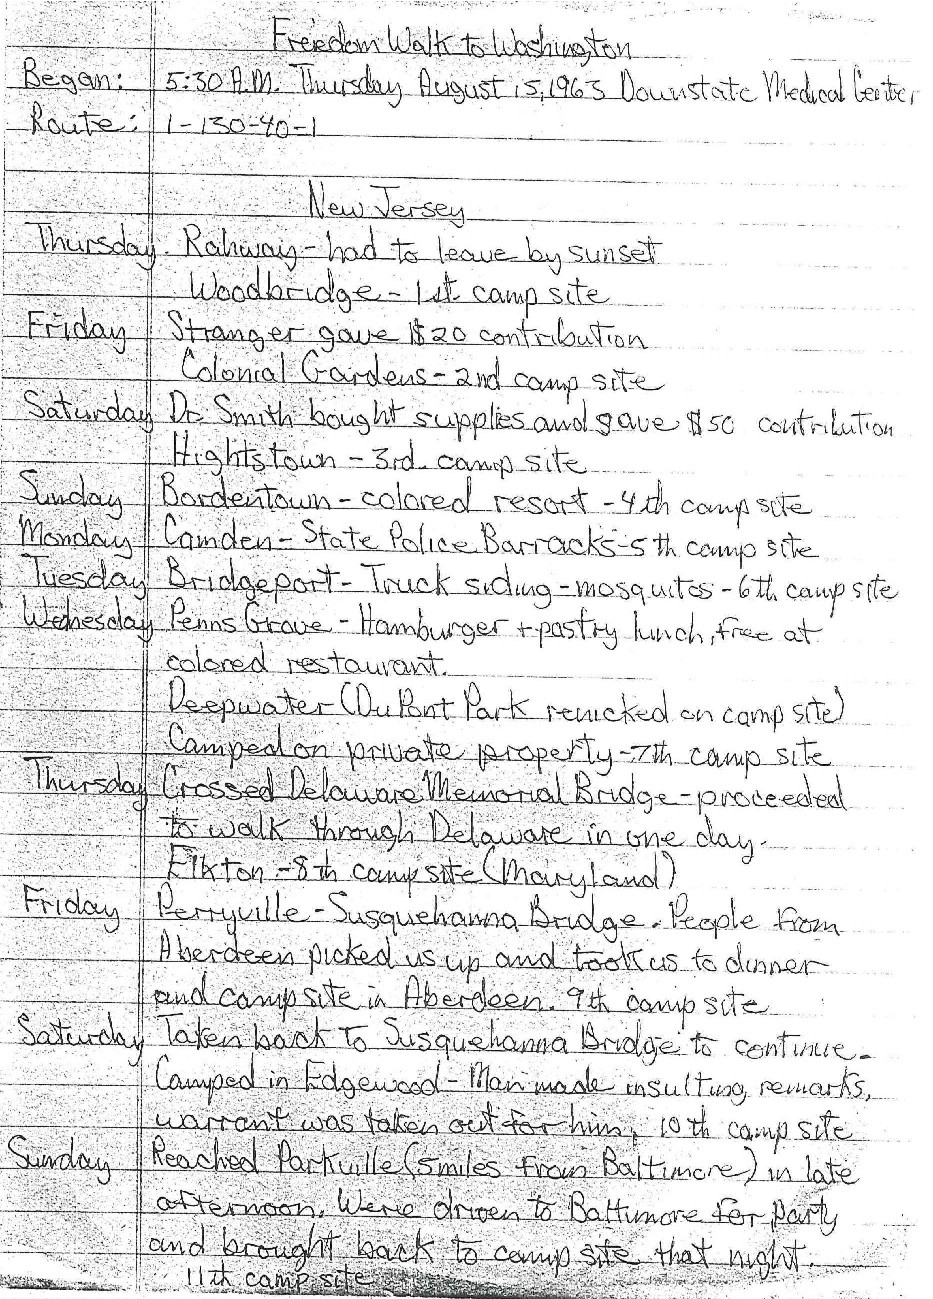 Freedom Walk to Washington
Began: 5:30 A.M. Thursday August 15, 1963 Downstate Medical Center
Route: 1-130-40-1
New Jersey
Thursday. Rahway - had to leave by sunset
Woodbridge - 1st camp site
Friday Stranger gave $20 contribution
Colonial Gardens - 2nd camp site
Saturday Dr. Smith bought supplies and gave $50 contribution
Hightstown - 3rd camp site
Sunday Bordentown - colored resort - 4th camp site
Monday Camden - State Police Barracks - 5th camp site
Tuesday Bridgeport - Truck siding - mosquitos - 6th camp site
Wednesday Penns Grove - Hamburger + pastry lunch, free at
colored restaurant.
Deepwater (DuPont Park renicked on camp site)
Camped on private property - 7th camp site
Thursday Crossed Delaware Memorial Bridge - proceeded
to walk through Delaware in one day.
Elkton - 8th camp site (Maryland)
Friday Perryville - Susquehanna Bridge. People from
Aberdeen picked us up and took us to dinner
and camp site in Aberdeen. 9th camp site
Saturday Taken back to Susquehanna Bridge to continue.
Camped in Edgewood - Man made insulting remarks,
warrant was taken out for him, 10th camp site
Sunday Reached Parkville (5 miles from Baltimore) in late
afternoon. Were driven to Baltimore for party
and brought back to camp site that night.
11th camp site